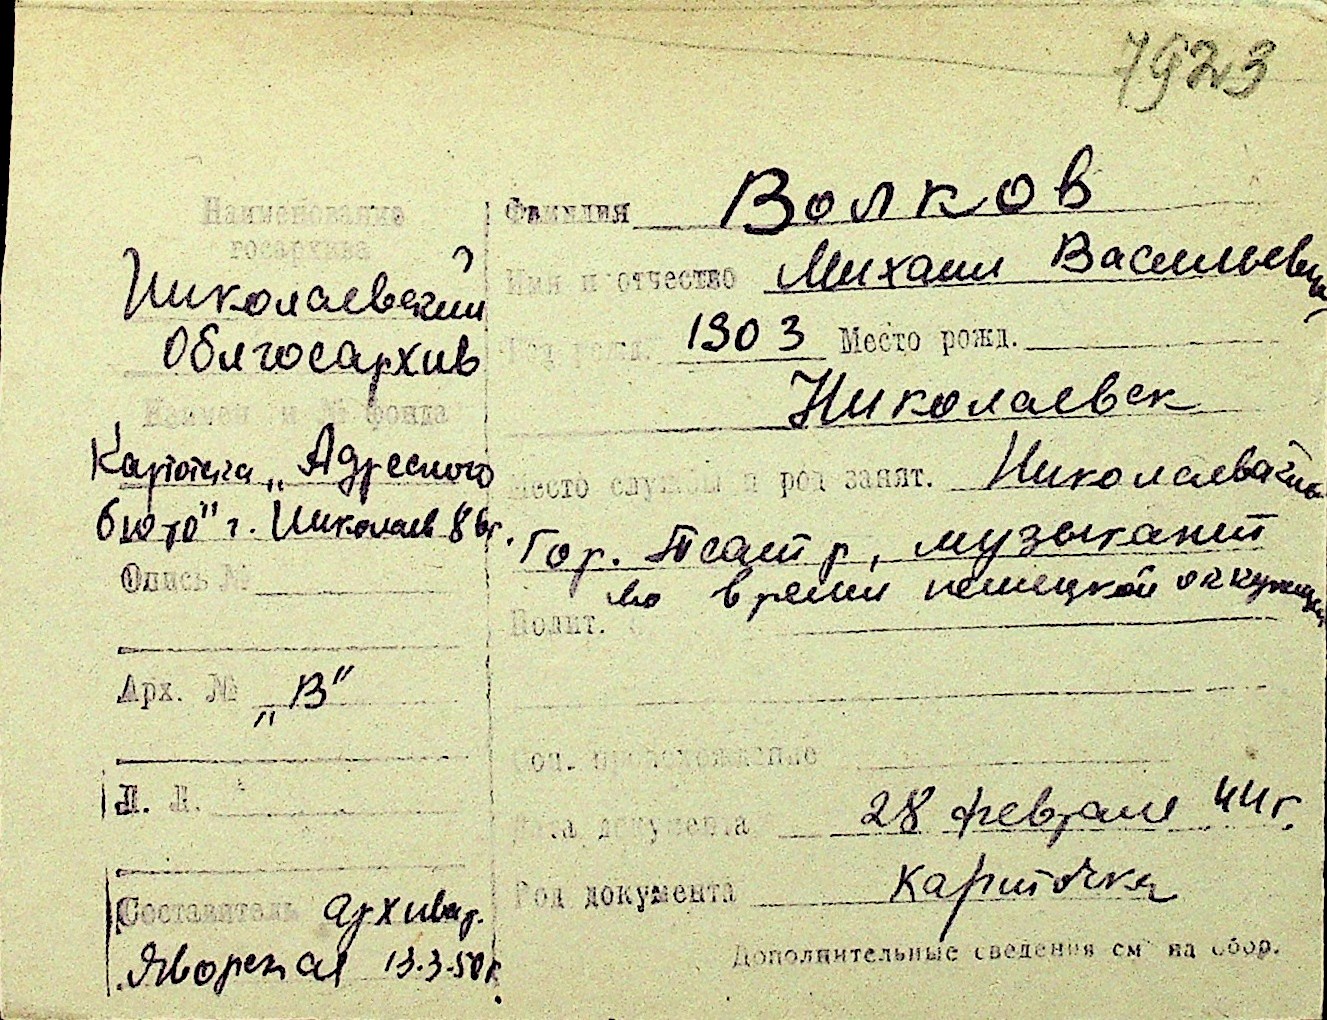 7923
Наименование
госархива
Николаевский
Облгосархив
Наимен. и № фонда
Картотека „Адресного
бюро" г. Николаев
Опись №
Арх. № „В"
Л. Л.
Составитель архивар.
Яворская 13.3.50г.
Фамилия Волков
Имя и отчество Михаил Васильевич
Год рожд. 1903 Место рожд.
Николаевск
Место службы и род занят. Николаевский
Гор. Театр, музыкант
во время немецкой оккупации
Полит.
Соц. происхождение
Дата документа 28 февраля 44 г.
Род документа карточка
Дополнительные сведения см на обор.